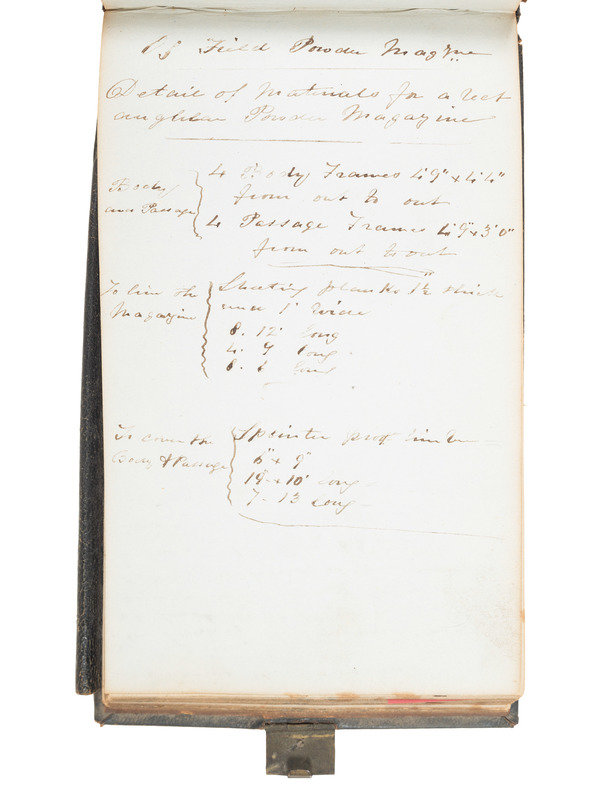 Field Powder Magzne
Detail of Materials for a rect
angular Powder Magazine
Body
and Passage
4 Body Frames 4'9" x 4'4"
from out to out
4 Passage Frames 4'9" x 3'0"
from out to out
To line the
Magazine
Sheeting planks 1½" thick
and 1' wide
8. 12' long
4. 7 long
8. 6 long
To cover the
Body & Passage
Splinter proof timber
6" x 9"
19 x 10' long
7 - 13 long